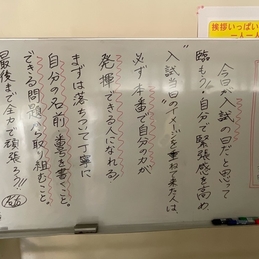 挨拶いっぱい
一人一人
今日が入試の日だと思って
臨もう!!自分で緊張感を高め
入試当日のイメージを重ねて来た人は、
必ず本番で自分の力が
発揮できる人になれる!
まずは落ちついて丁寧に
自分の名前、番号を書くこと。
できる問題から取り組むこと。
最後まで全力で頑張ろう!!